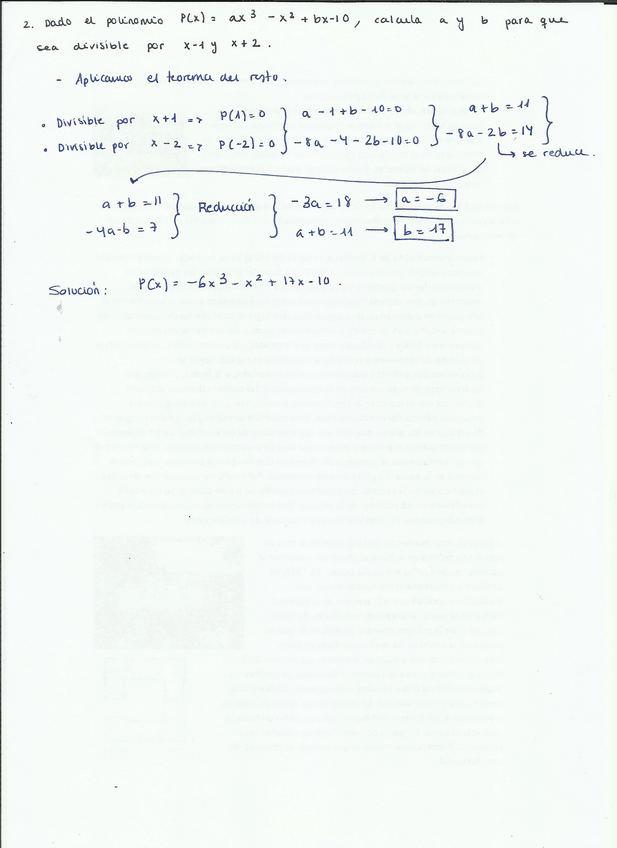 2. Dado el polinomio P(x) = ax³ - x² + bx-10, calcula a y b para que
sea divisible por x-1 y x+2.
- Aplicamos el teorema del resto.
• Divisible por x+1 => P(1)=0 } a - 1 + b - 10 = 0 } a+b = 11 }
• Divisible por x-2 => P(-2)=0 } -8a - 4 - 2b - 10 = 0 } -8a - 2b = 14 }
↳ se reduce.
a+b = 11 } Reducción } -3a = 18 → a = -6
-4a-b = 7 } a+b = 11 → b = 17
Solución: P(x) = -6x³ - x² + 17x - 10.